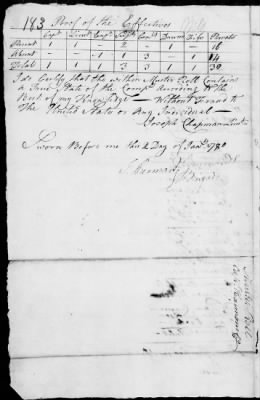 183 Proof of the Effectives
Capt Lieut Ensn Sergts Corpls Drum Fife Privates
Present 1 1 - 2 - 1 - 16
Absent - - 1 1 3 - 1 14
Total 1 1 1 3 3 1 1 30
I do Certify that the within Muster Roll Contains
a True State of the Compy According to the
Best of my Knowledge Without Fraud to
The United States or Any Individual
Joseph Chapman Lieut
Sworn Before me this 2 Day of Jany 1780
Muster Roll